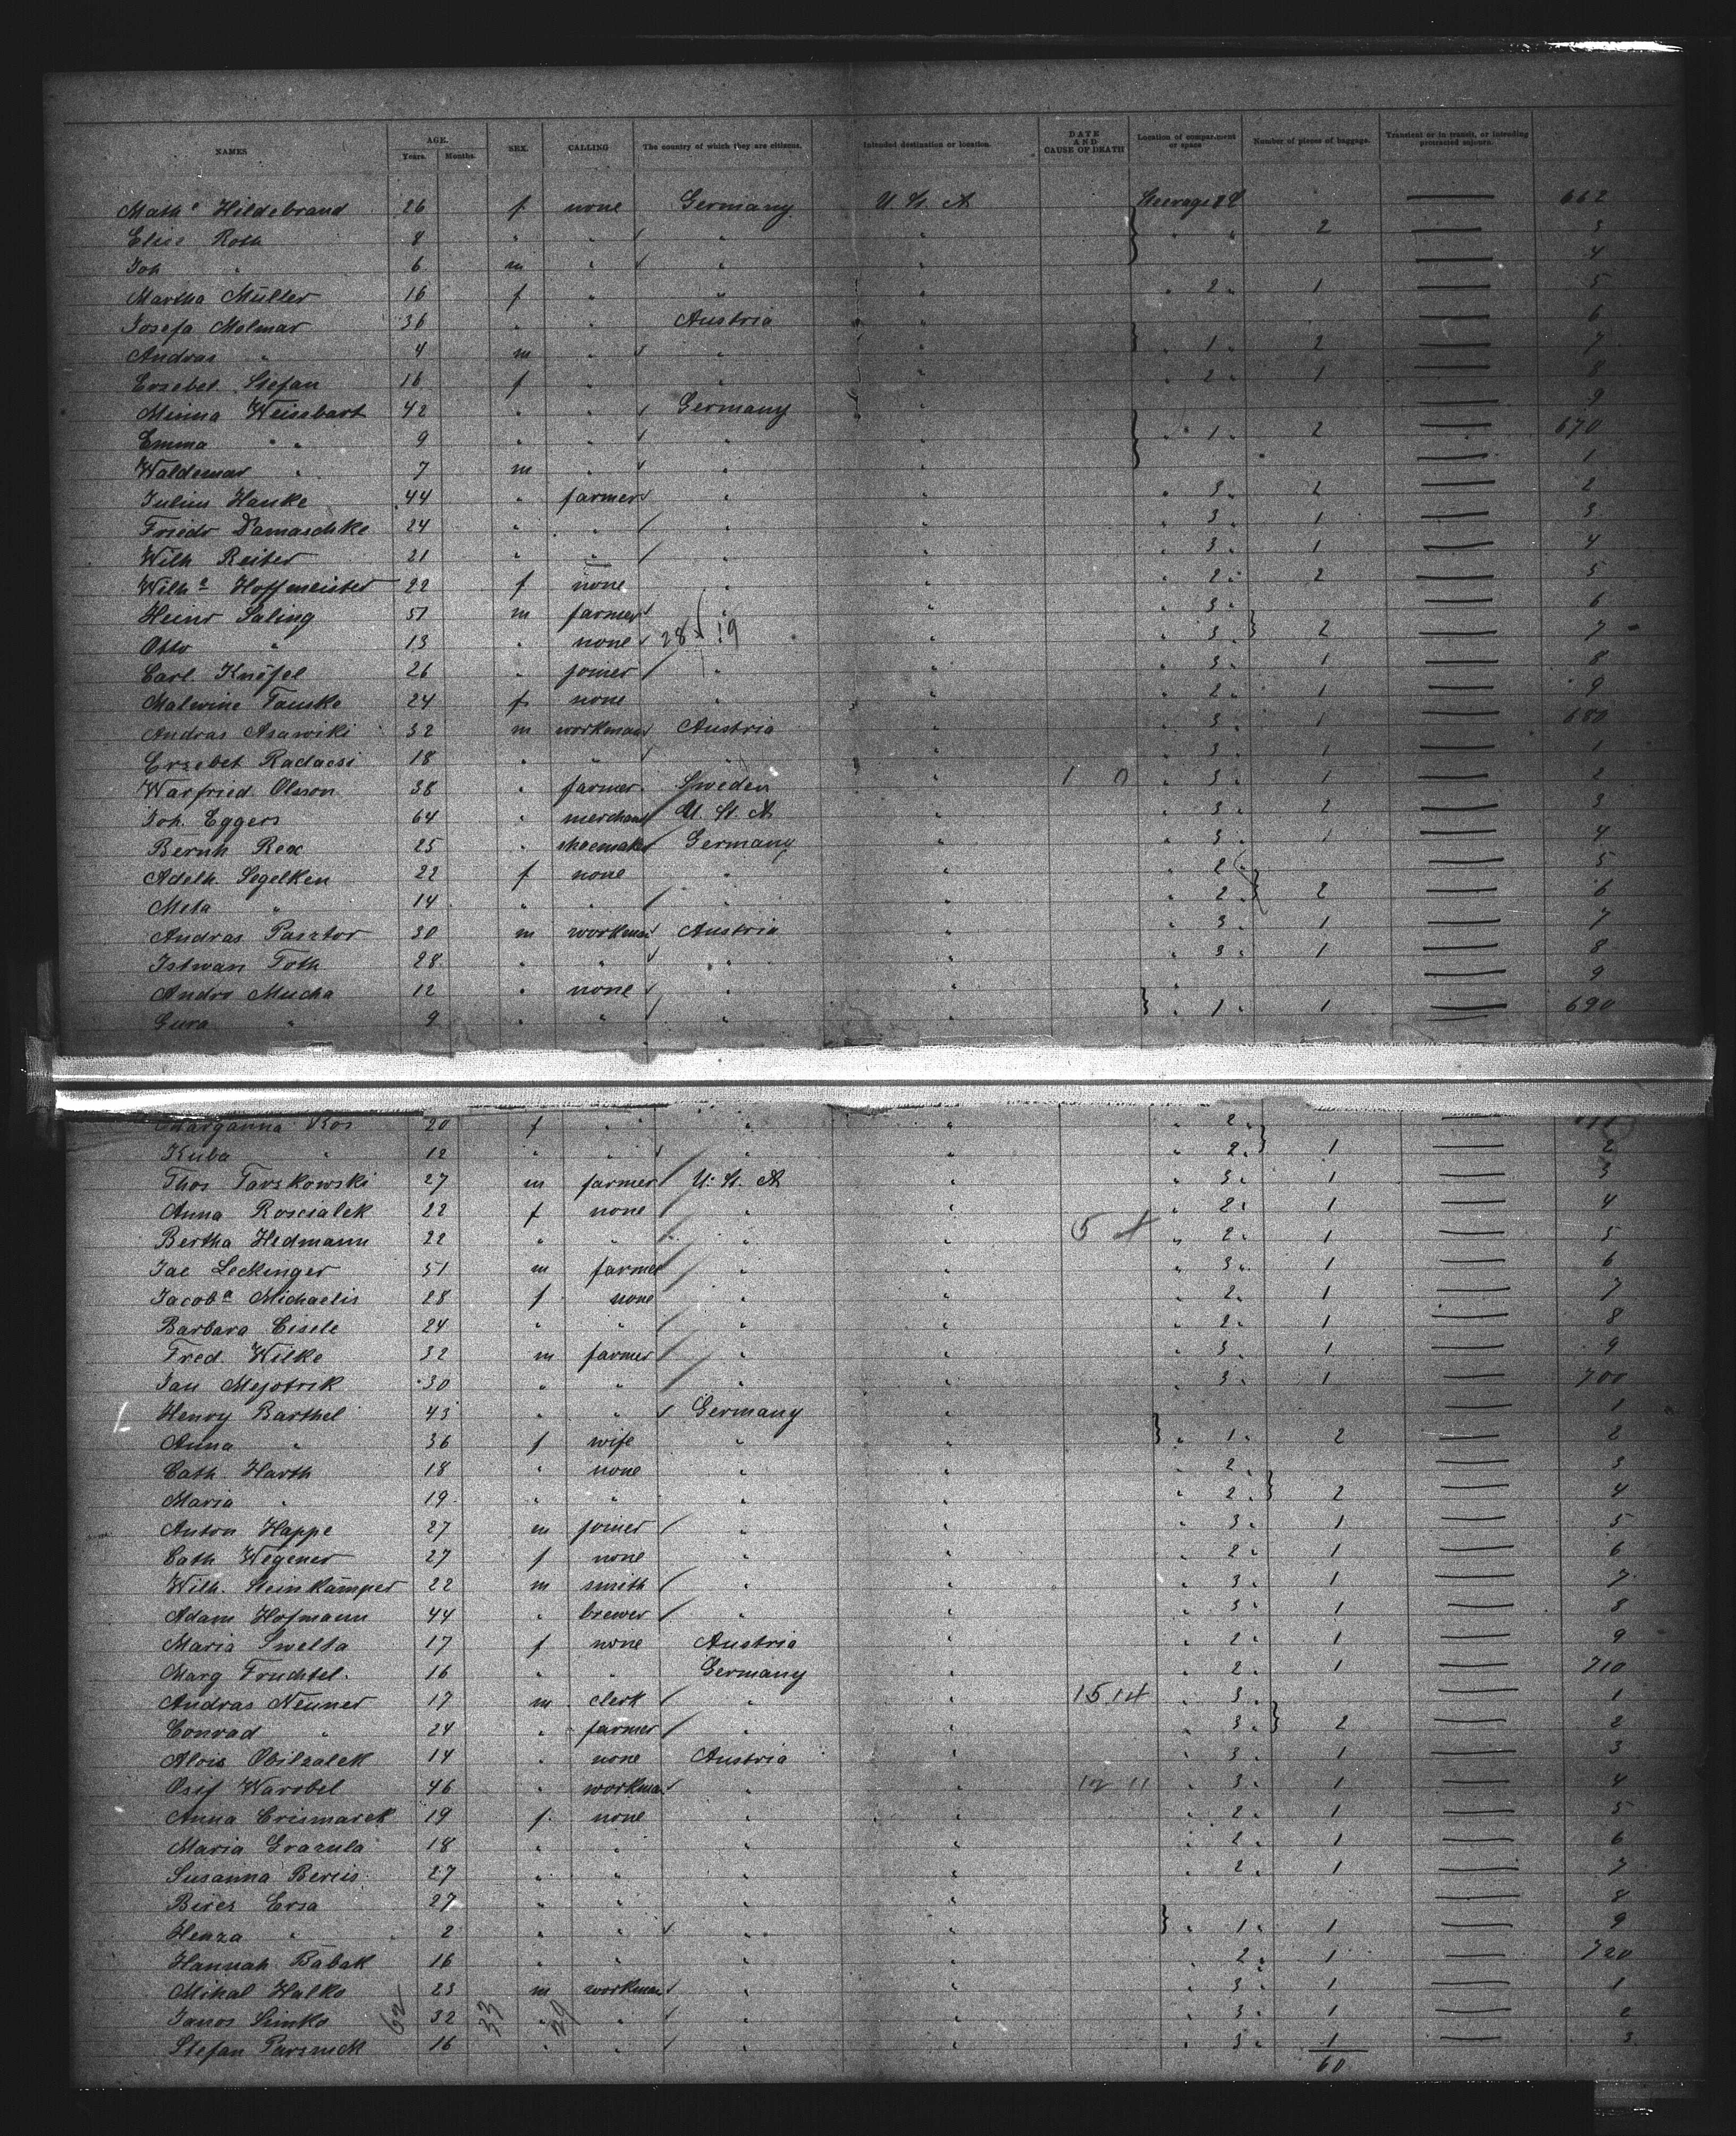 NAMES AGE. Years. Months. SEX. CALLING The country of which they are citizens. Intended destination or location. DATE AND CAUSE OF DEATH Location of compartment or space Number of pieces of baggage. Transient or in transit, or intending protracted sojourn.
Mathe Hildebrand 26 f none Germany U. St. A Steerage — 662
Elise Roth 8 " " " " " " 2 — 3
Joh " 6 m " " " — 4
Martha Müller 16 f " " " " 2 " 1 — 5
Josefa Molnar 36 " " Austria " — 6
Andras " 4 m " " " " 1 " 2 — 7
Erzebet Stefan 16 f " " " " 2 " 1 — 8
Minna Weissbart 42 " " Germany " — 9
Emma " 9 " " " " " 1 " 2 — 670
Waldemar " 7 m " " " — 1
Julius Hanke 44 " farmer " " " 3 " 2 — 2
Friedr Damaschke 24 " " " " " 3 " 1 — 3
Wilh Reiter 21 " " " " " 3 " 1 — 4
Wilhe Hoffmeister 22 f none " " " 2 " 2 — 5
Heinr Saling 51 m farmer " " " 3 " — 6
Otto " 13 " none 28 19 " " 3 " 2 — 7
Carl Knöfel 26 " joiner " " " 3 " 1 — 8
Malwine Fauske 24 f none " " " 2 " 1 — 9
Andras Asawiki 32 m workman Austria " " 3 " 1 — 680
Erzebet Radacsi 18 " " " " " 3 " 1 — 1
Warfried Olsson 38 " farmer Sweden " 1 0 " 3 " 1 — 2
Joh. Eggers 64 " merchant U. St. A " " 3 " 2 — 3
Bernh Rex 25 " shoemaker Germany " " 3 " 1 — 4
Adelh. Segelken 22 f none " " " 2 " — 5
Meta " 14 " " " " " 2 " 2 — 6
Andras Pasztor 30 m workman Austria " " 3 " 1 — 7
Istwan Toth 28 " " " " " 3 " 1 — 8
Andro Mucha 12 " none " " — 9
Gura " 9 " " " " " 1 " 1 — 690
Marganna Kos 20 f " " " " 2 " —
Kuba " 12 " " " " " 2 " 1 — 2
Thos Tarskowski 27 m farmer U. St. A " " 3 " 1 — 3
Anna Roscialek 22 f none " " " 2 " 1 — 4
Bertha Hedmann 22 " " " " 5 " 2 " 1 — 5
Jac Leckinger 51 m farmer " " " 3 " 1 — 6
Jacoba Michaelis 28 f none " " " 2 " 1 — 7
Barbara Eisele 24 " " " " " 2 " 1 — 8
Fred. Wilke 32 m farmer " " " 3 " 1 — 9
Jan Mejstrik 30 " " " " " 3 " 1 — 700
Henry Barthel 43 " " Germany " — 1
Anna " 36 f wife " " " 1 " 2 — 2
Cath. Harth 18 " none " " " 2 " — 3
Maria " 19 " " " " " 2 " 2 — 4
Anton Happe 27 m joiner " " " 3 " 1 — 5
Cath Wegener 27 f none " " " 2 " 1 — 6
Wilh. Steinkämper 22 m smith " " " 3 " 1 — 7
Adam Hofmann 44 " brewer " " " 3 " 1 — 8
Maria Swelta 17 f none Austria " " 2 " 1 — 9
Marg Fruchtel. 16 " " Germany " " 2 " 1 — 710
Andras Neuner 17 m clerk " " 15 14 " 3 " — 1
Conrad " 24 " farmer " " " 3 " 2 — 2
Alois Obilzalek 14 " none Austria " " 3 " 1 — 3
Osif Warobel 46 " workman " " 12 11 " 3 " 1 — 4
Anna Crismarek 19 f. none " " " 2 " 1 — 5
Maria Grazula 18 " " " " " 2 " 1 — 6
Susanna Bercis 27 " " " " " 2 " 1 — 7
Birez Ersa 27 " " " " — 8
Henza " 2 " " " " " 1 " 1 — 9
Hannah Babak 16 " " " " " 2 " 1 — 720
Mihal Halko 23 m workman " " " 3 " 1 — 1
Janos Simko 32 " " " " " 3 " 1 — 2
Stefan Parsnick 16 " " " " " 3 " 1 — 3
62 33 29
60